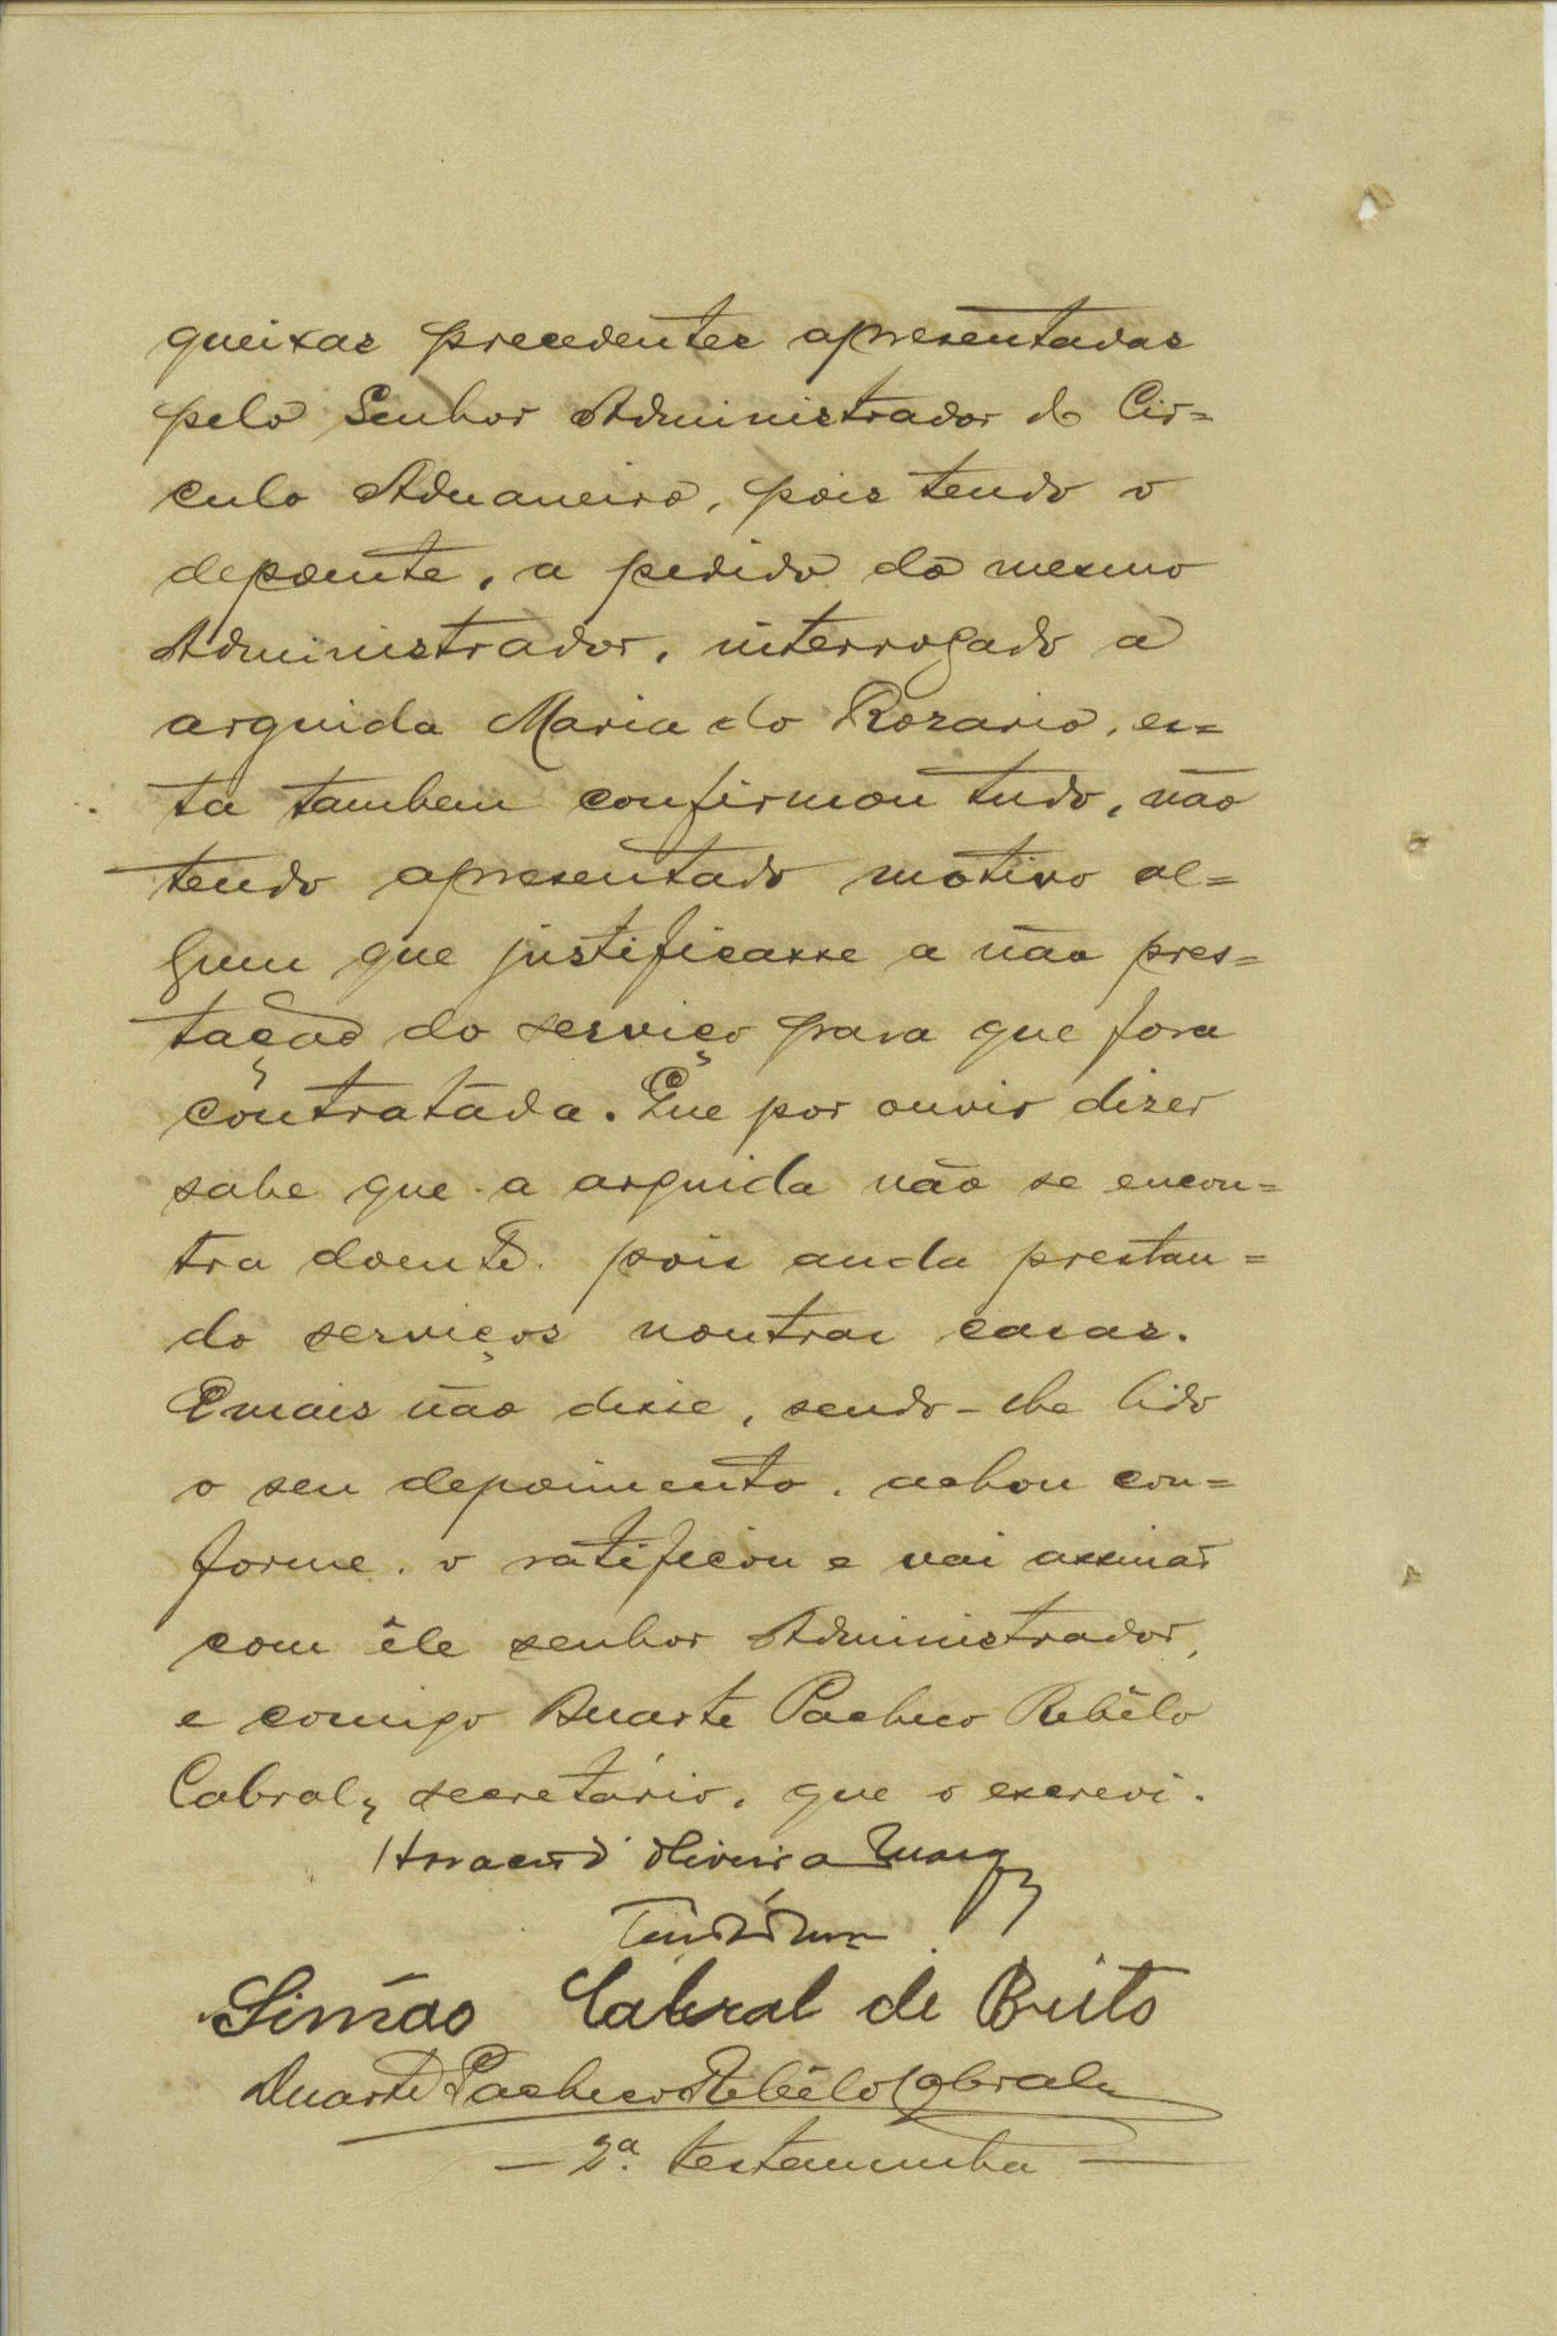 queixas precedentes apresentadas
pelo Senhor Administrador do Cir=
culo Aduaneiro, pois tendo o
depoente, a pedido do mesmo
Administrador, interrogado a
arguida Maria do Rozario, es=
ta tambem confirmou tudo, não
tendo apresentado motivo al=
gum que justificasse a não pres=
tação do serviço para que fora
contratada. Que por ouvir dizer
sabe que a arguida não se encon=
tra doente, pois anda prestan=
do serviços noutras casas.
E mais não disse, sendo-lhe lido
o seu depoimento, achou con=
forme, o ratificou e vai assinar
com êle senhor Administrador,
e comigo Duarte Pacheco Rebêlo
Cabral, secretário, que o escrevi.
Oliveira
Simão Cabral de Brito
Duarte Pacheco Rebêlo Cabral
— 2ª. testemunha —